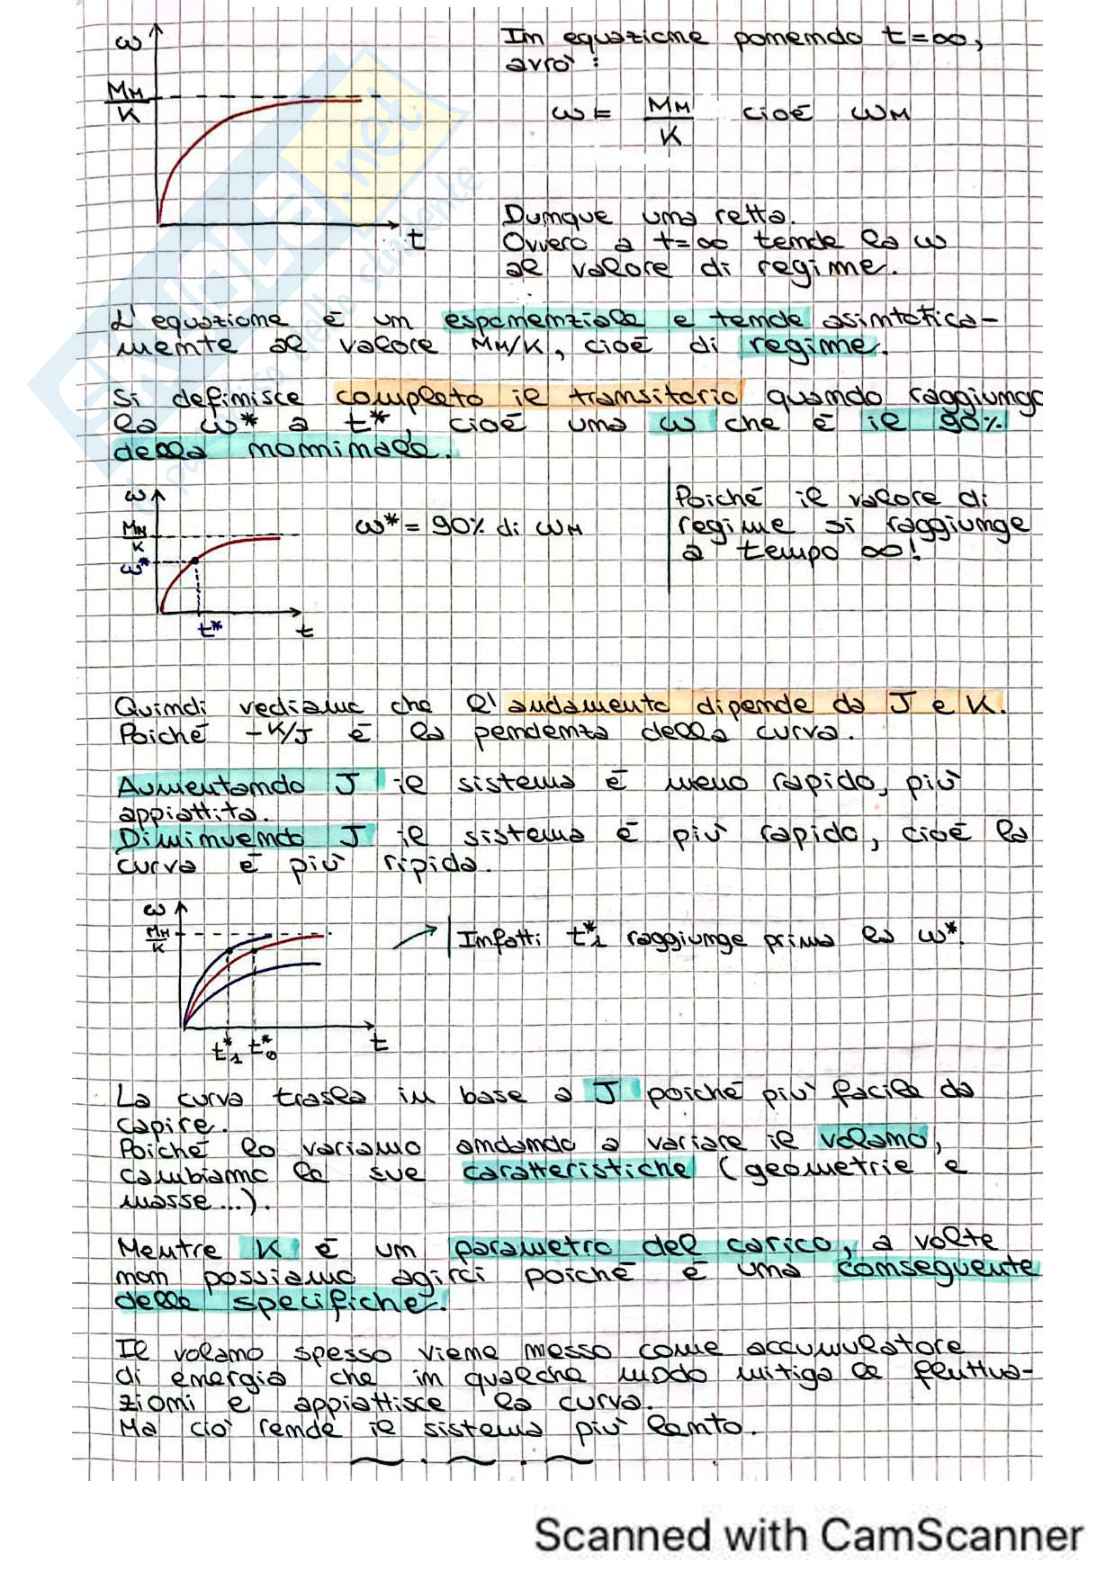 ω
M_M/K
t
In equazione ponendo t=∞,
avrò:
ω = M_M/K cioè ω_M
Dunque una retta.
Ovvero a t=∞ tende la ω
al valore di regime.
L'equazione è un esponenziale e tende asintotica-
mente al valore M_M/K, cioè di regime.
Si definisce completo il transitorio quando raggiungo
la ω* a t*, cioè una ω che è il 90%
della nominale.
ω
M_M/K
ω*
t*
t
ω* = 90% di ω_M
Poiché il valore di
regime si raggiunge
a tempo ∞!
Quindi vediamo che l'andamento dipende da J e K.
Poiché -K/J è la pendenza della curva.
Aumentando J il sistema è meno rapido, più
appiattito.
Diminuendo J il sistema è più rapido, cioè la
curva è più ripida.
ω
M_M/K
t*₁ t*₀
t
Infatti t*₁ raggiunge prima la ω*.
La curva trasla in base a J poiché più facile da
capire.
Poiché lo variamo andando a variare il volano,
cambiamo le sue caratteristiche (geometrie e
masse...).
Mentre K è un parametro del carico, a volte
non possiamo agirci poiché è una conseguente
delle specifiche.
Il volano spesso viene messo come accumulatore
di energia che in qualche modo mitiga le fluttua-
zioni e appiattisce la curva.
Ma ciò rende il sistema più lento.
Scanned with CamScanner